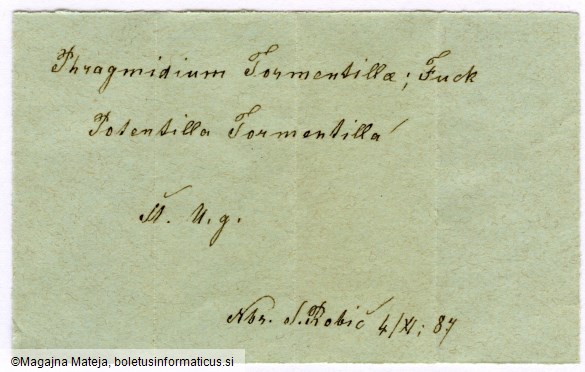 Phragmidium Tormentillæ; Fuck
Potentilla Tormentilla
Št. U. g.
Nbr. S. Robič 4/XI; 87
©Magajna Mateja, boletusinformaticus.si